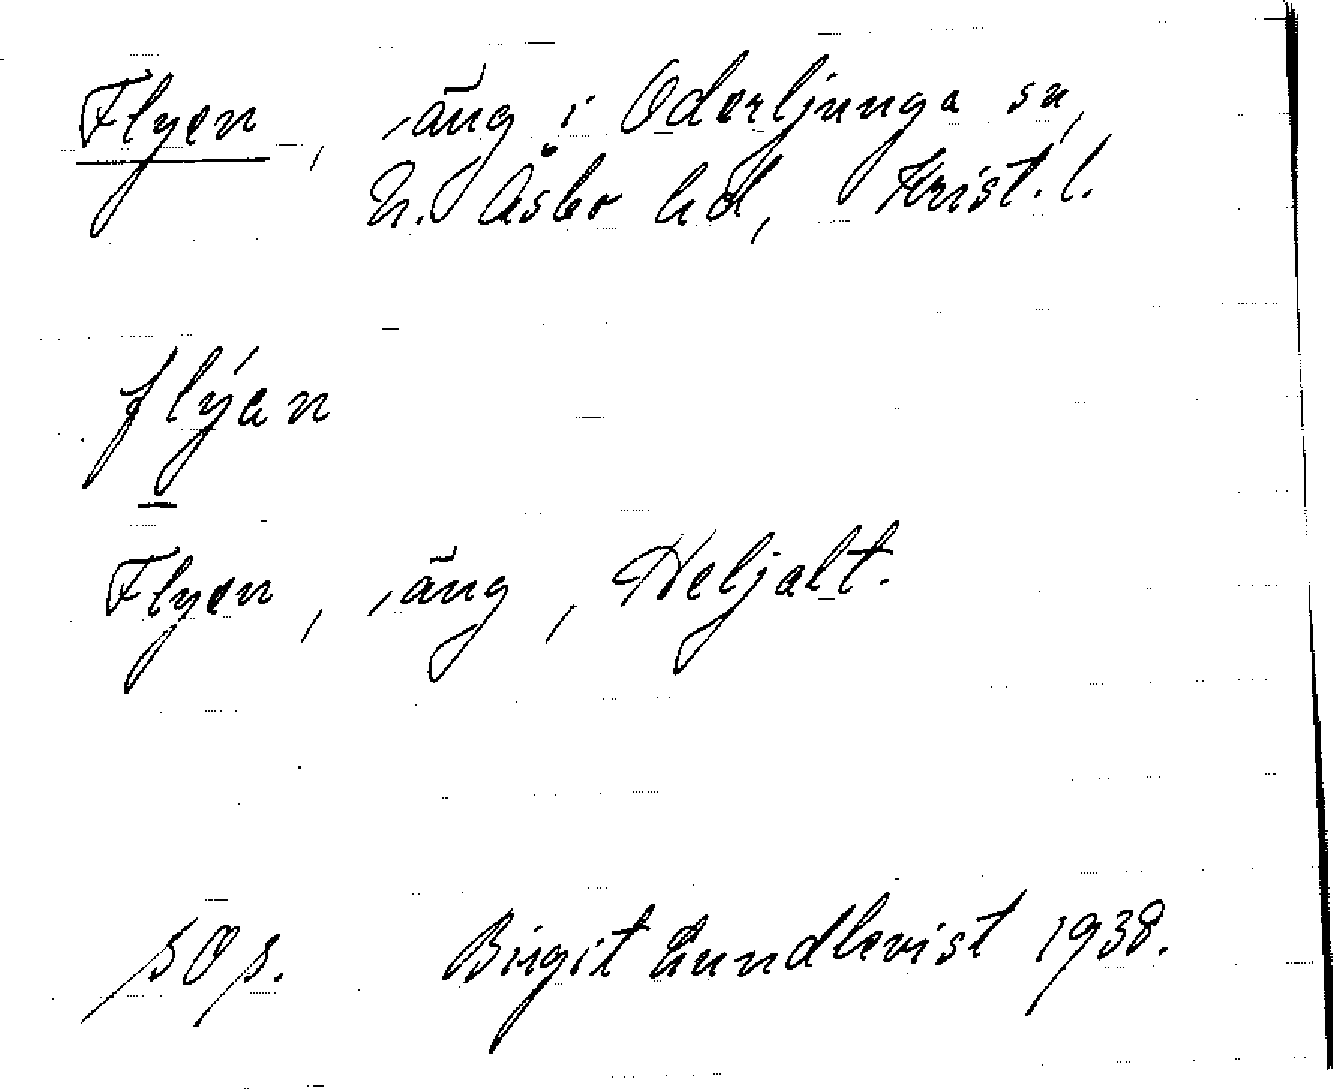 Flyen, äng i Oderljunga sn,
N. Åsbo hd, Krist. l.
flýan
Flyen, äng, Heljalt.
Birgit Lundkvist 1938.